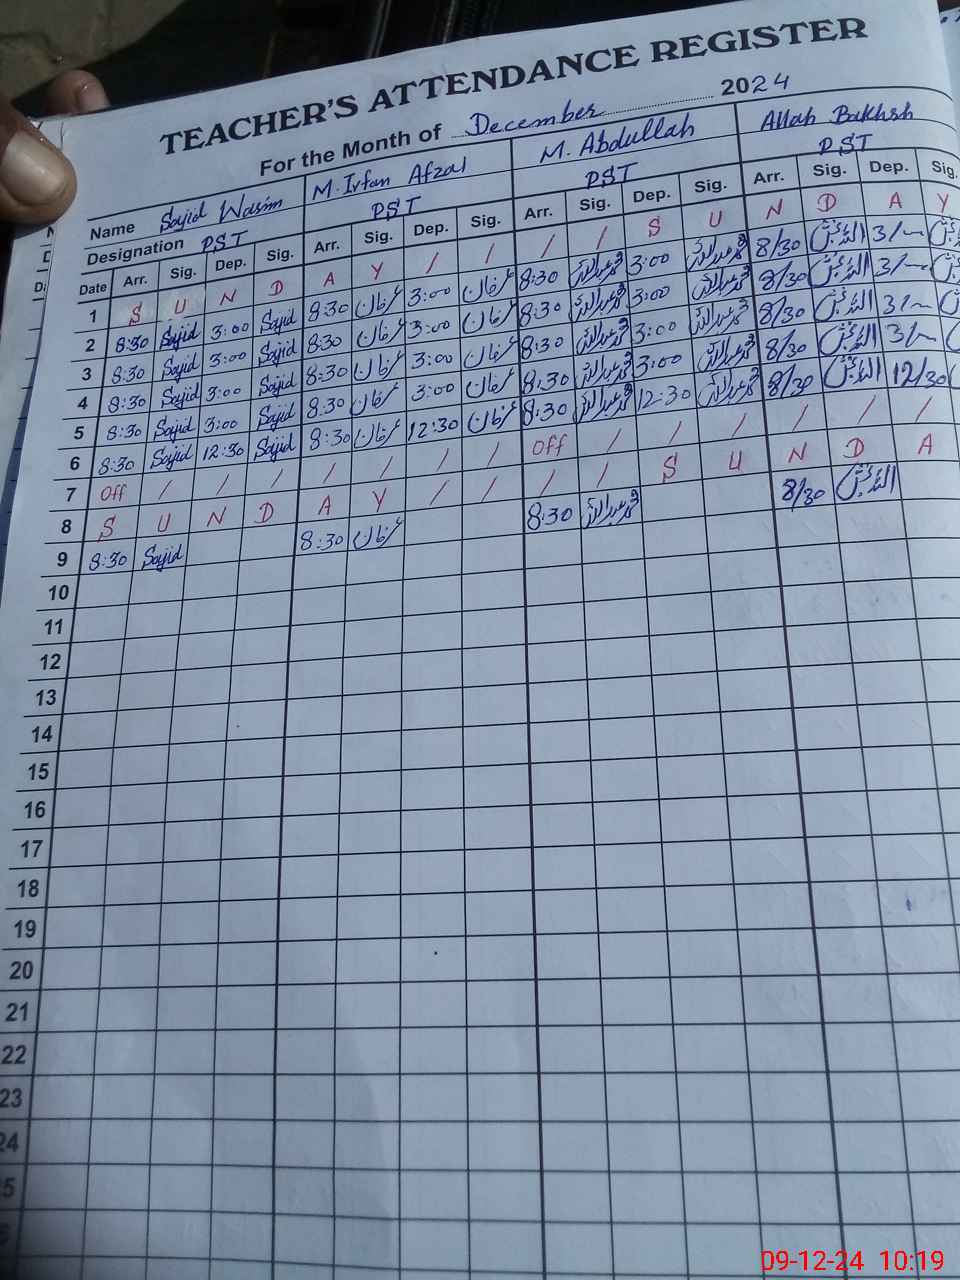 TEACHER'S ATTENDANCE REGISTER
For the Month of December 2024
Name Sajid Wasim M. Irfan Afzal M. Abdullah Allah Bakhsh
Designation PST PST PST PST
Date Arr. Sig. Dep. Sig. Arr. Sig. Dep. Sig. Arr. Sig. Dep. Sig. Arr. Sig. Dep. Sig.
1 S U N D A Y / / / / S U N D A Y
2 8:30 Sajid 3:00 Sajid 8:30 عرفان 3:00 عرفان 8:30 3:00 8/30 3/—
3 8:30 Sajid 3:00 Sajid 8:30 عرفان 3:00 عرفان 8:30 3:00 8/30 3/—
4 8:30 Sajid 3:00 Sajid 8:30 عرفان 3:00 عرفان 8:30 3:00 8/30 3/—
5 8:30 Sajid 3:00 Sajid 8:30 عرفان 3:00 عرفان 8:30 3:00 8/30 3/—
6 8:30 Sajid 12:30 Sajid 8:30 عرفان 12:30 عرفان 8:30 12:30 8/30 12/30
7 Off / / / / / / / Off / / / / / /
8 S U N D A Y / / / / S U N D A
9 8:30 Sajid 8:30 عرفان 8:30 8/30
10
11
12
13
14
15
16
17
18
19
20
21
22
23
24
09-12-24 10:19